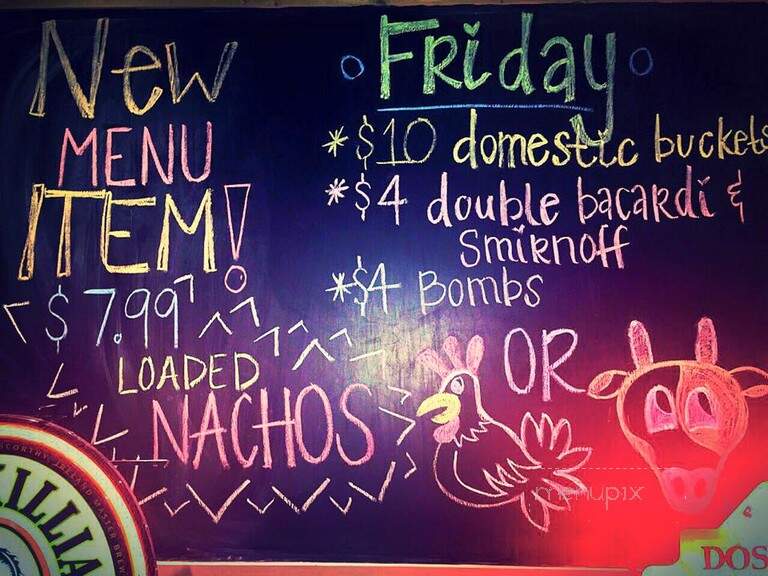 New
MENU
ITEM!
$7.99
LOADED
NACHOS
Friday
*$10 domestic buckets
*$4 double bacardi &
Smirnoff
*$4 Bombs
OR
menupix
KILLIA
DOS